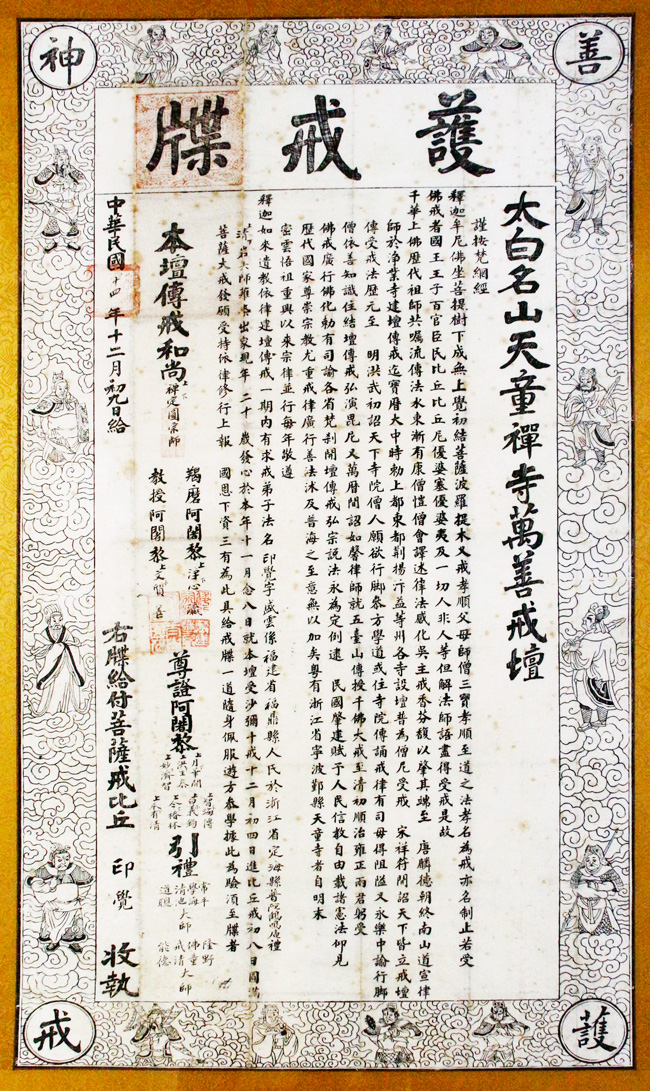 善
神
護戒牒
太白名山天童禪寺萬善戒壇
謹按梵網經
釋迦牟尼佛坐菩提樹下成無上覺初結菩薩波羅提木叉戒孝順父母師僧三寶孝順至道之法孝名為戒亦名制止若受
佛戒者國王王子百官臣民比丘比丘尼優婆塞優婆夷及一切人非人等但解法師語盡得受戒是故
千華上佛歷代祖師共囑流傳法水東漸有康僧愷僧會譯述律法感化吳主戒香芬馥以肇其端至 唐麟德朝終南山道宣律
師於淨業寺建壇傳戒迄寶曆大中時勅上都東都荊揚汴益等州各寺設壇普為僧尼受戒 宋祥符間詔天下皆立戒壇
傳受戒法歷元至 明洪武初詔天下寺院僧人願欲行脚叅方學道或住寺院傳誦戒律有司毋得阻隘又永樂中諭行脚
僧依善知識住結壇傳戒弘演毘尼又萬曆間詔如馨律師就五臺山傳授千佛大戒至清初順治雍正兩君躬受
佛戒廣行佛化勅有司諭各省梵剎開壇傳戒弘宗說法永為定例逮 民國肇建賦予人民信教自由載諸憲法仰見
歷代國家尊崇宗教尤重戒律廣行善法沐及普海之至意無以加矣粵有浙江省寧波鄞縣天童寺者自明末
密雲悟祖重興以來宗律並行每年敬遵
釋迦如來遺教依律建壇傳戒一期內有求戒弟子法名印覺字盛雲係福建省福鼎縣人民於浙江省定海縣普陀鶴鳴庵禮
大師 出家現年二十 歲發心於本年十一月念八日就本壇受沙彌十戒十二月初四日進比丘戒初八日圓滿
菩薩大戒發願受持依律修行上報 國恩下資三有為此具給戒牒一道隨身佩服遊方叅學據此為驗須至牒者
本壇傳戒和尚 上 下 禪定圓宗師
羯磨阿闍黎 上淨下心
教授阿闍黎 上文下質
尊證阿闍黎
引禮
常平
學海
清池大師
道聰
隆野
佛童
戒清大師
能德
右牒給付菩薩戒比丘 印覺 收執
中華民國十四年十二月初九日給
護
戒